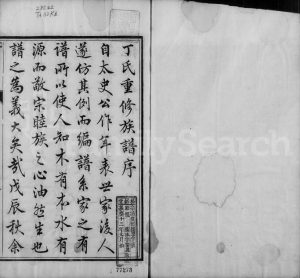 丁氏重修族譜序
自太史公作年表世家後人
遂仿其例而編譜系家之有
譜所以使人知木有本水有
源而敬宗睦族之心油然生也
譜之為義大矣哉戊辰秋余
77273
FamilySearch